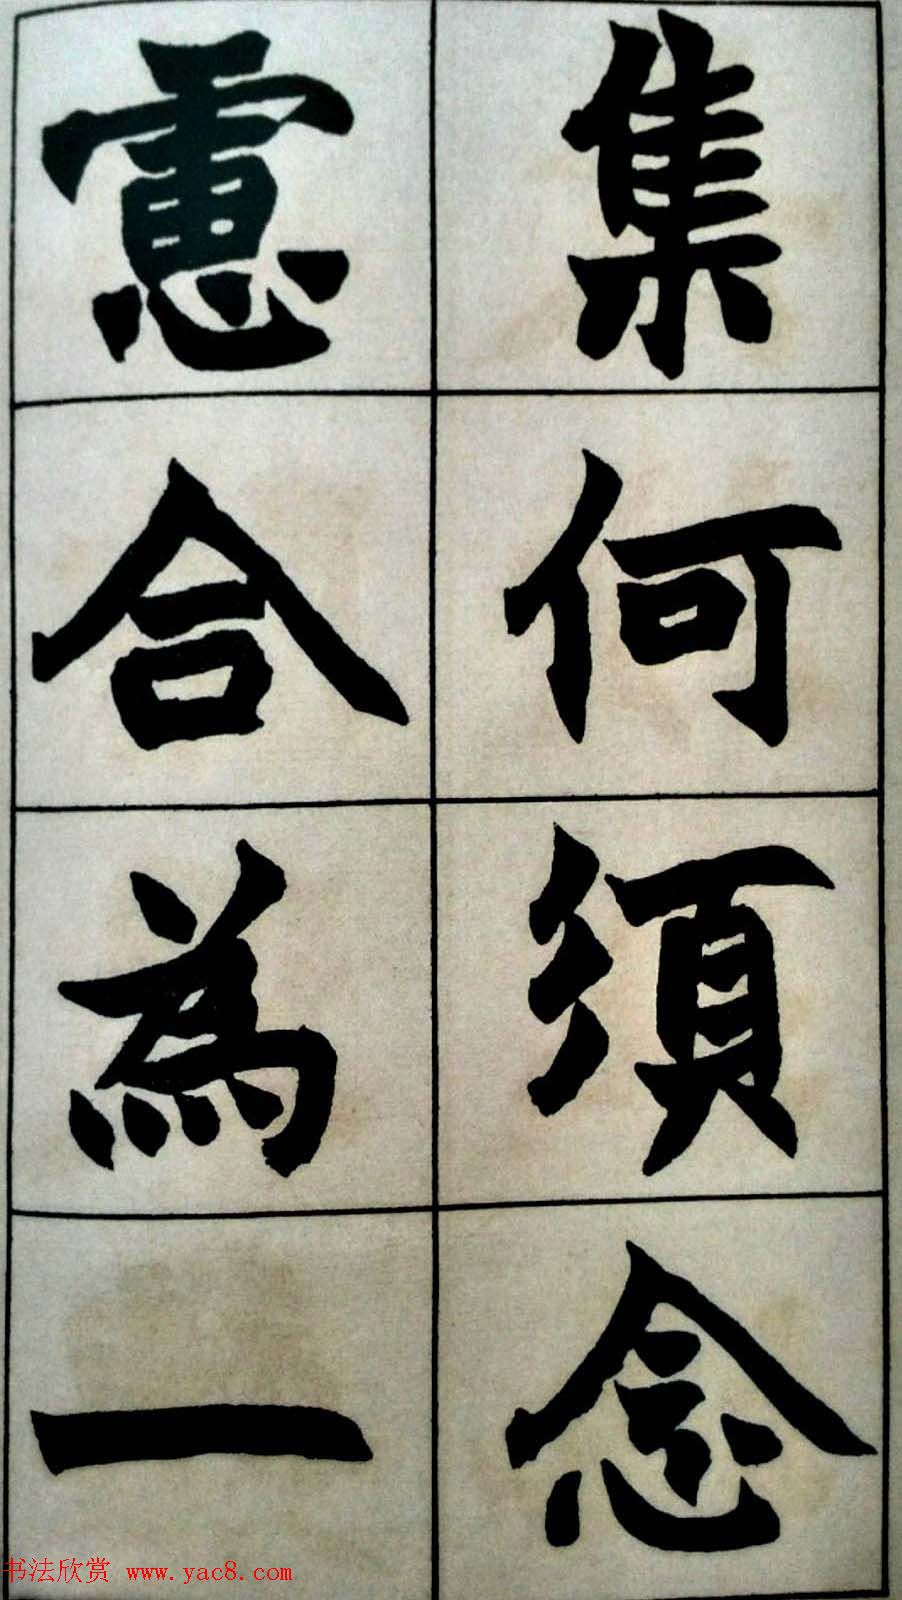 集何須念
慮合為一
书法欣赏 www.yac8.com